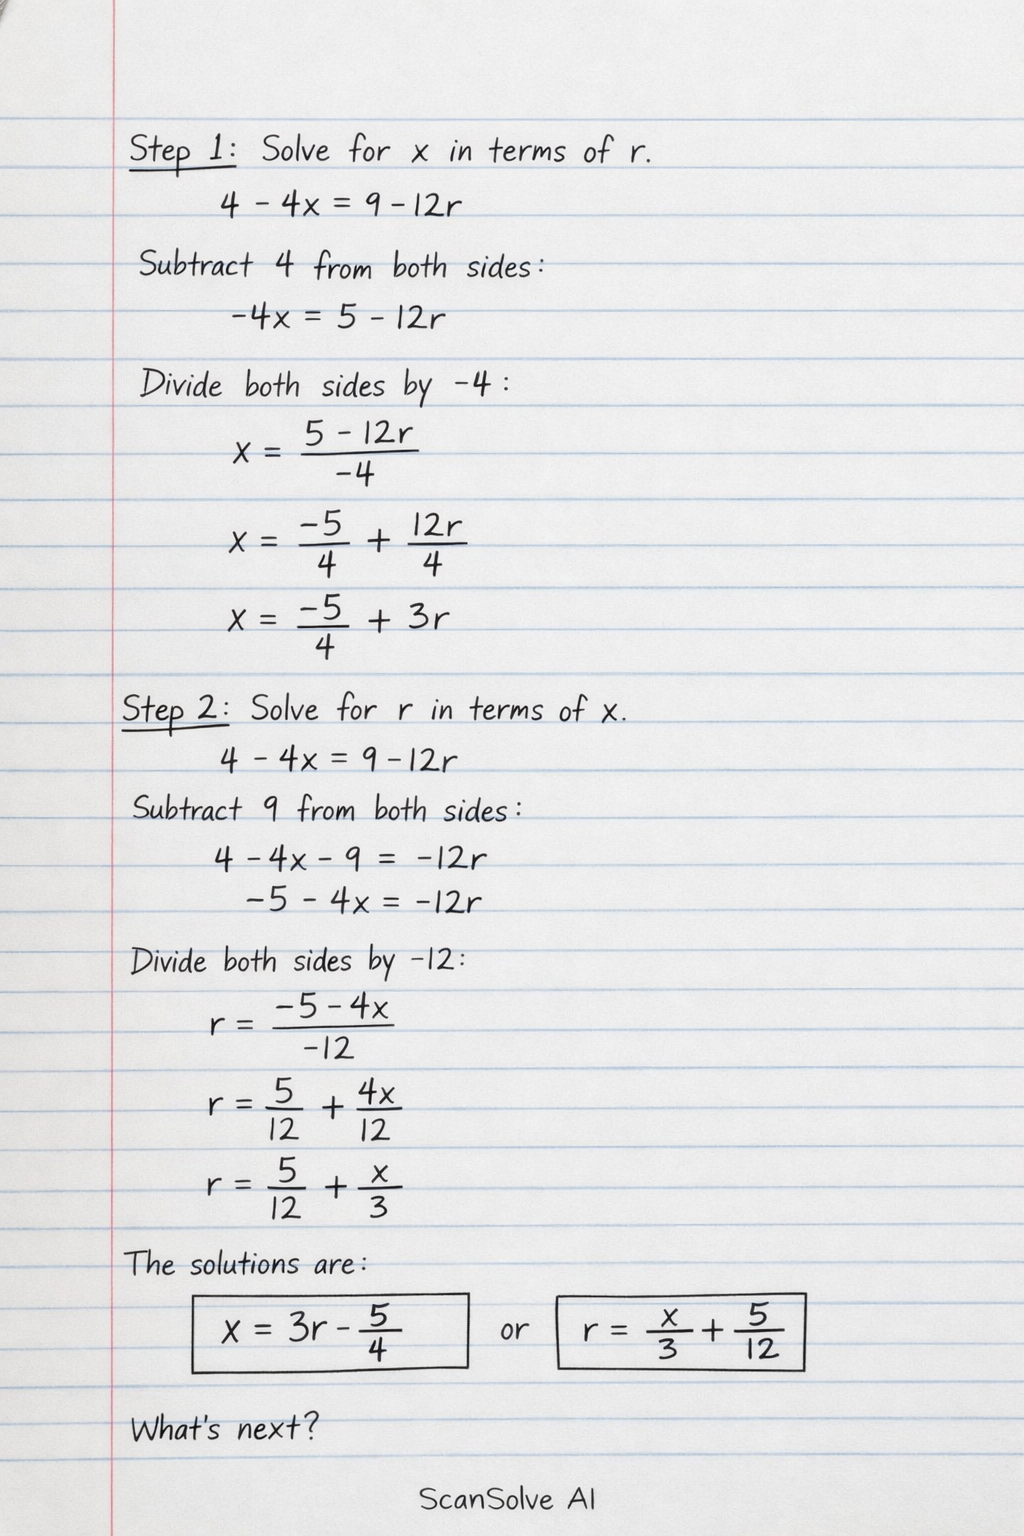 Step 1: Solve for x in terms of r.
4 - 4x = 9 - 12r
Subtract 4 from both sides:
-4x = 5 - 12r
Divide both sides by -4:
x = \frac{5 - 12r}{-4}
x = \frac{-5}{4} + \frac{12r}{4}
x = \frac{-5}{4} + 3r
Step 2: Solve for r in terms of x.
4 - 4x = 9 - 12r
Subtract 9 from both sides:
4 - 4x - 9 = -12r
-5 - 4x = -12r
Divide both sides by -12:
r = \frac{-5 - 4x}{-12}
r = \frac{5}{12} + \frac{4x}{12}
r = \frac{5}{12} + \frac{x}{3}
The solutions are:
x = 3r - \frac{5}{4} or r = \frac{x}{3} + \frac{5}{12}
What's next?
ScanSolve AI